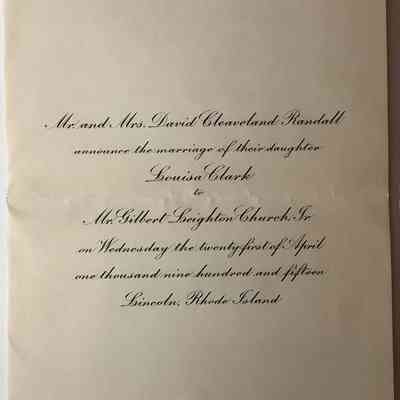 Mr. and Mrs. David Cleaveland Randall
announce the marriage of their daughter
Louisa Clark
to
Mr. Gilbert Leighton Church, Jr.
on Wednesday the twenty first of April
one thousand nine hundred and fifteen
Lincoln, Rhode Island